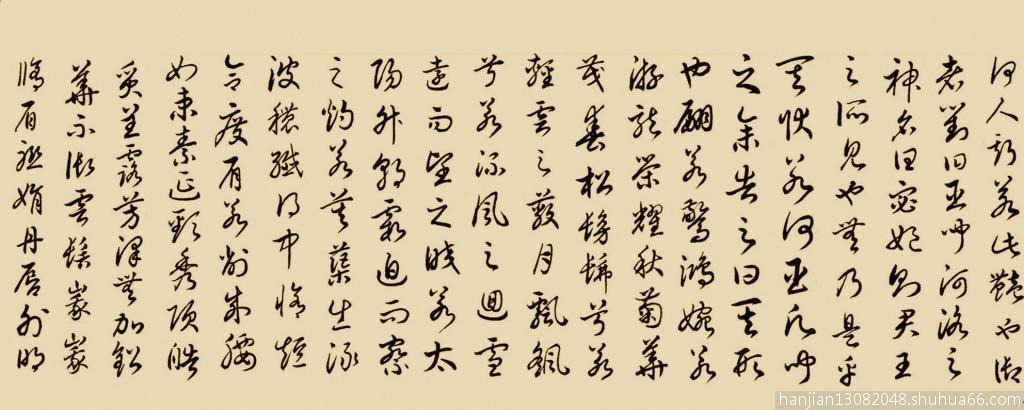 何人斯若此豔也御
者對曰臣聞河洛之
神名曰宓妃則君王
之所見也無乃是乎
其狀若何臣願聞
之余告之曰其形
也翩若驚鴻婉若
游龍榮耀秋菊華
茂春松髣髴兮若
輕雲之蔽月飄颻
兮若流風之迴雪
遠而望之皎若太
陽升朝霞迫而察
之灼若芙蕖出淥
波穠纖得中脩短
合度肩若削成腰
如束素延頸秀項皓
質呈露芳澤無加鉛
華不御雲髻峩峩
脩眉聯娟丹唇外朗
hanjian13082048.shuhua66.com